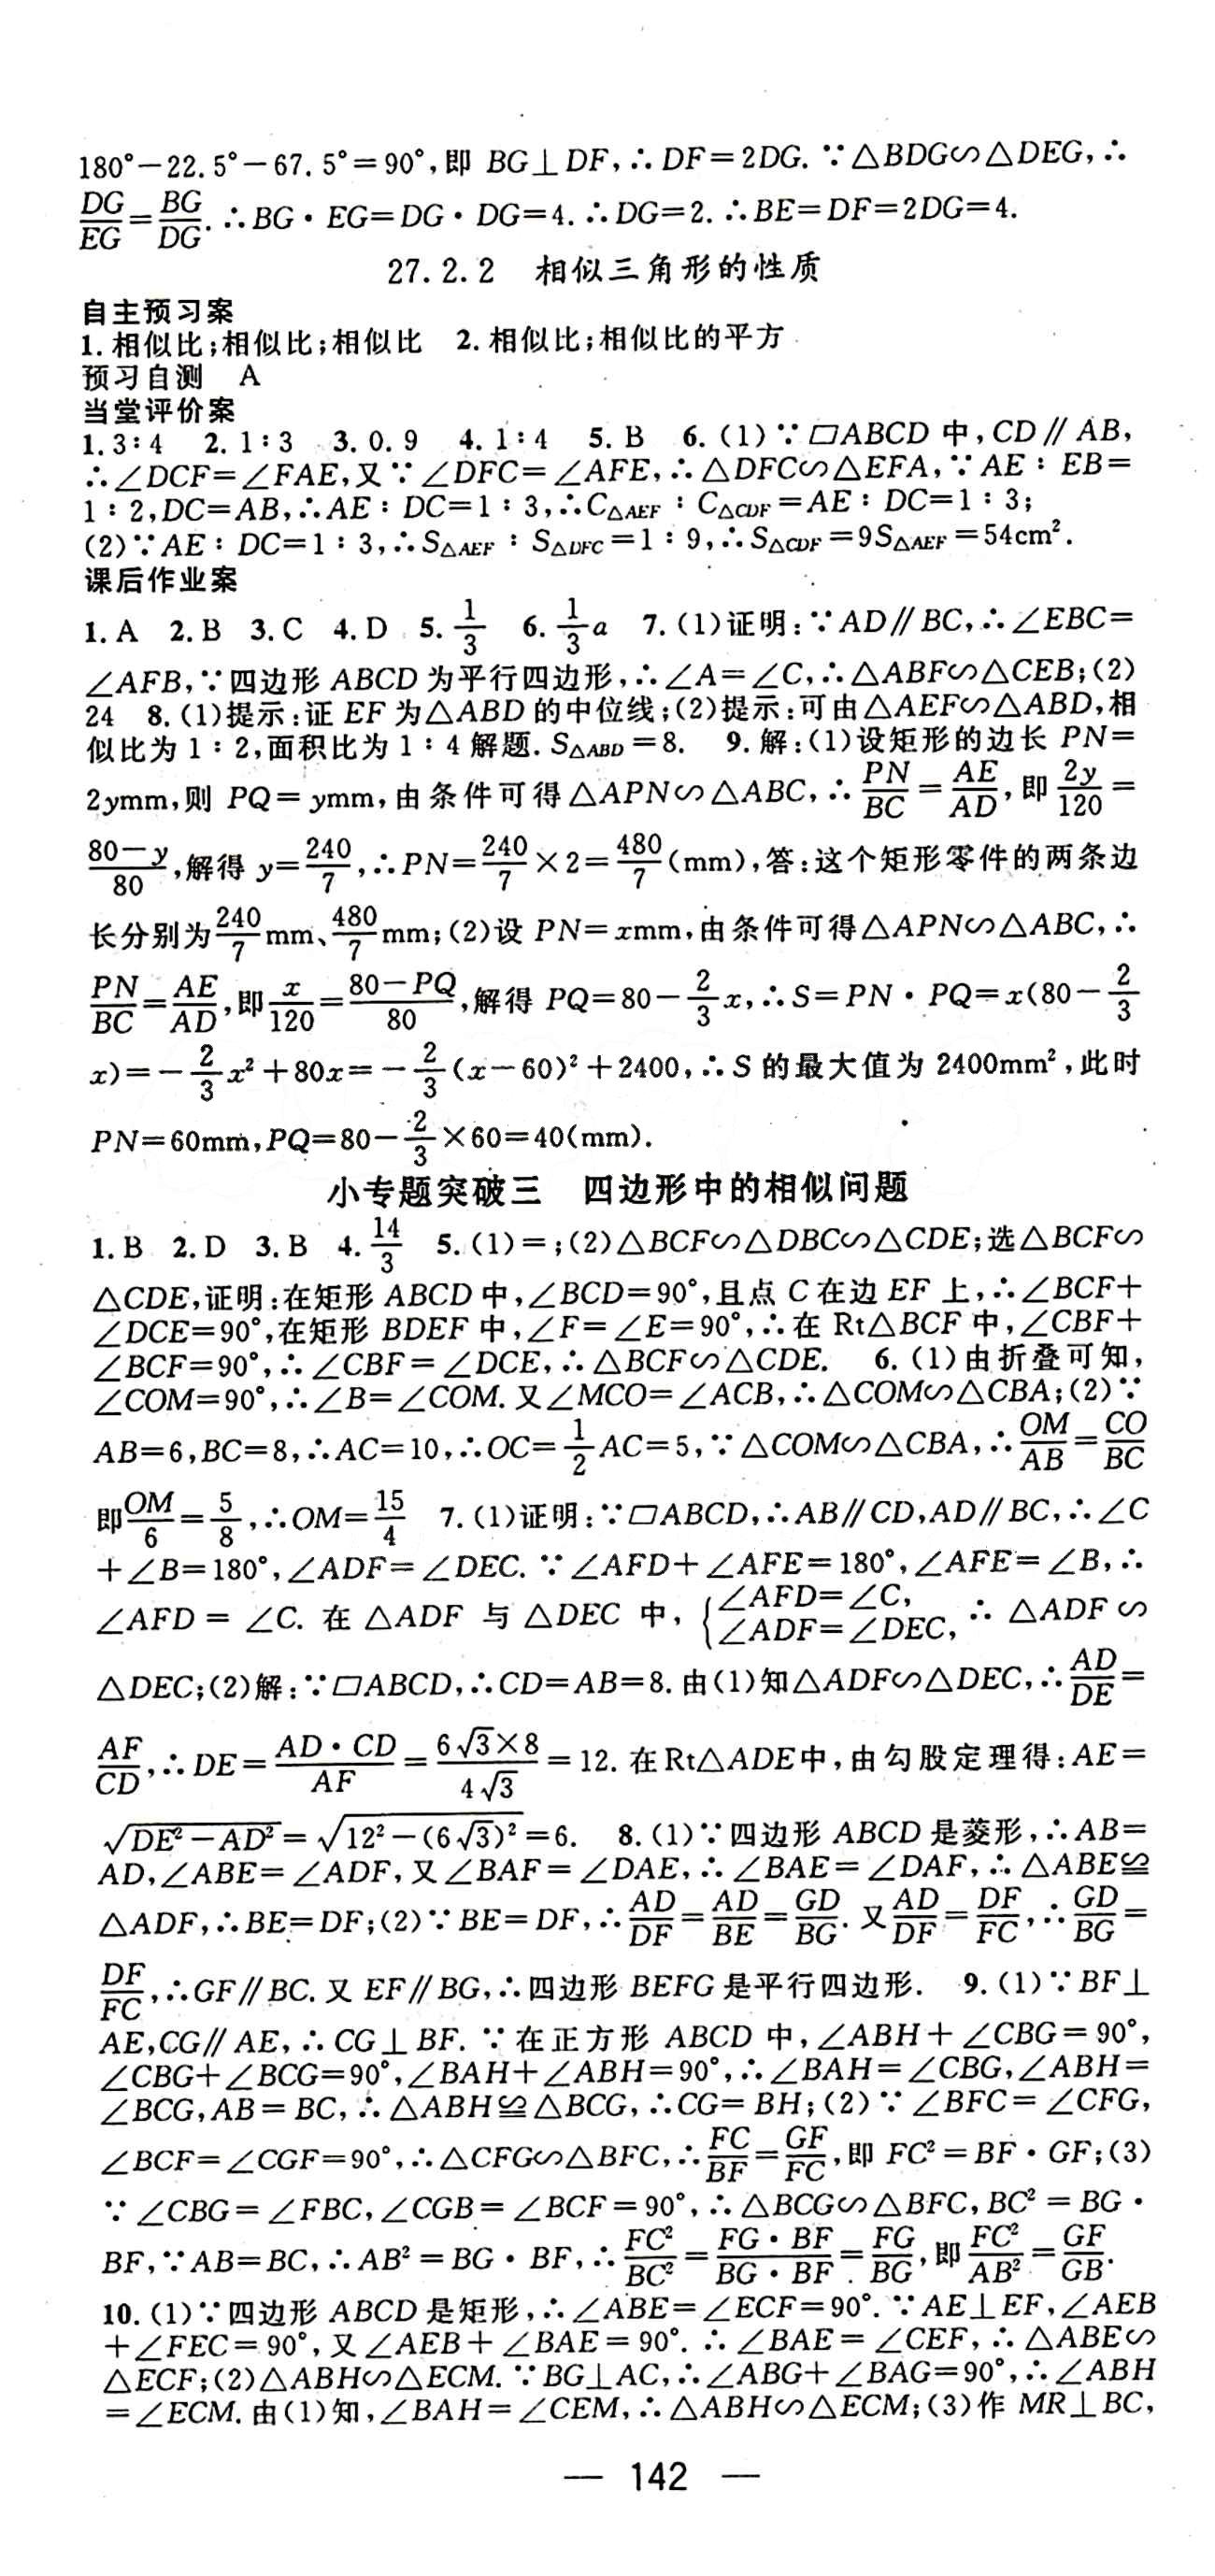 180°－22.5°－67.5°＝90°,即 BG⊥DF,∴DF＝2DG.∵△BDG∽△DEG,∴
DG/EG＝BG/DG.∴BG·EG＝DG·DG＝4.∴DG＝2.∴BE＝DF＝2DG＝4.
27.2.2 相似三角形的性质
自主预习案
1.相似比;相似比;相似比 2.相似比;相似比的平方
预习自测 A
当堂评价案
1.3∶4 2.1∶3 3.0.9 4.1∶4 5.B 6.(1)∵▱ABCD 中,CD∥AB,
∴∠DCF＝∠FAE,又∵∠DFC＝∠AFE,∴△DFC∽△EFA,∵AE∶EB＝
1∶2,DC＝AB,∴AE∶DC＝1∶3,∴C△AEF∶C△CDF＝AE∶DC＝1∶3;
(2)∵AE∶DC＝1∶3,∴S△AEF∶S△DFC＝1∶9,∴S△CDF＝9S△AEF＝54cm².
课后作业案
1.A 2.B 3.C 4.D 5.1/3 6.1/3a 7.(1)证明:∵AD∥BC,∴∠EBC＝
∠AFB,∵四边形 ABCD 为平行四边形,∴∠A＝∠C,∴△ABF∽△CEB;(2)
24 8.(1)提示:证 EF 为△ABD 的中位线;(2)提示:可由△AEF∽△ABD,相
似比为 1∶2,面积比为 1∶4 解题.S△ABD＝8. 9.解:(1)设矩形的边长 PN＝
2ymm,则 PQ＝ymm,由条件可得△APN∽△ABC,∴PN/BC＝AE/AD,即 2y/120＝
(80－y)/80,解得 y＝240/7,∴PN＝240/7×2＝480/7(mm),答:这个矩形零件的两条边
长分别为240/7mm、480/7mm;(2)设 PN＝xmm,由条件可得△APN∽△ABC,∴
PN/BC＝AE/AD,即x/120＝(80－PQ)/80,解得 PQ＝80－2/3x,∴S＝PN·PQ＝x(80－2/3
x)＝－2/3x²＋80x＝－2/3(x－60)²＋2400,∴S 的最大值为 2400mm²,此时
PN＝60mm,PQ＝80－2/3×60＝40(mm).
小专题突破三 四边形中的相似问题
1.B 2.D 3.B 4.14/3 5.(1)＝;(2)△BCF∽△DBC∽△CDE;选△BCF∽
△CDE,证明:在矩形 ABCD 中,∠BCD＝90°,且点 C 在边 EF 上,∴∠BCF＋
∠DCE＝90°,在矩形 BDEF 中,∠F＝∠E＝90°,∴在 Rt△BCF 中,∠CBF＋
∠BCF＝90°,∴∠CBF＝∠DCE,∴△BCF∽△CDE. 6.(1)由折叠可知,
∠COM＝90°,∴∠B＝∠COM.又∠MCO＝∠ACB,∴△COM∽△CBA;(2)∵
AB＝6,BC＝8,∴AC＝10,∴OC＝1/2AC＝5,∵△COM∽△CBA,∴OM/AB＝CO/BC
即OM/6＝5/8,∴OM＝15/4 7.(1)证明:∵▱ABCD,∴AB∥CD,AD∥BC,∴∠C
＋∠B＝180°,∠ADF＝∠DEC.∵∠AFD＋∠AFE＝180°,∠AFE＝∠B,∴
∠AFD＝∠C.在△ADF 与△DEC 中,{∠AFD＝∠C,∠ADF＝∠DEC,∴△ADF∽
△DEC;(2)解:∵▱ABCD,∴CD＝AB＝8.由(1)知△ADF∽△DEC,∴AD/DE＝
AF/CD,∴DE＝AD·CD/AF＝6√3×8/4√3＝12.在Rt△ADE中,由勾股定理得:AE＝
√(DE²－AD²)＝√(12²－(6√3)²)＝6. 8.(1)∵四边形 ABCD 是菱形,∴AB＝
AD,∠ABE＝∠ADF,又∠BAF＝∠DAE,∴∠BAE＝∠DAF,∴△ABE≌
△ADF,∴BE＝DF;(2)∵BE＝DF,∴AD/DF＝AD/BE＝GD/BG.又AD/DF＝DF/FC,∴GD/BG＝
DF/FC,∴GF∥BC.又 EF∥BG,∴四边形 BEFG 是平行四边形. 9.(1)∵BF⊥
AE,CG∥AE,∴CG⊥BF.∵在正方形 ABCD 中,∠ABH＋∠CBG＝90°,
∠CBG＋∠BCG＝90°,∠BAH＋∠ABH＝90°,∴∠BAH＝∠CBG,∠ABH＝
∠BCG,AB＝BC,∴△ABH≌△BCG,∴CG＝BH;(2)∵∠BFC＝∠CFG,
∠BCF＝∠CGF＝90°,∴△CFG∽△BFC,∴FC/BF＝GF/FC,即 FC²＝BF·GF;(3)
∵∠CBG＝∠FBC,∠CGB＝∠BCF＝90°,∴△BCG∽△BFC,BC²＝BG·
BF,∵AB＝BC,∴AB²＝BG·BF,∴FC²/BC²＝FG·BF/BG·BF＝FG/BG,即FC²/AB²＝GF/GB.
10.(1)∵四边形 ABCD 是矩形,∴∠ABE＝∠ECF＝90°.∵AE⊥EF,∠AEB
＋∠FEC＝90°,又∠AEB＋∠BAE＝90°.∴∠BAE＝∠CEF,∴△ABE∽
△ECF;(2)△ABH∽△ECM.∵BG⊥AC,∴∠ABG＋∠BAG＝90°,∴∠ABH
＝∠ECM.由(1)知,∠BAH＝∠CEM,∴△ABH∽△ECM;(3)作 MR⊥BC,
— 142 —